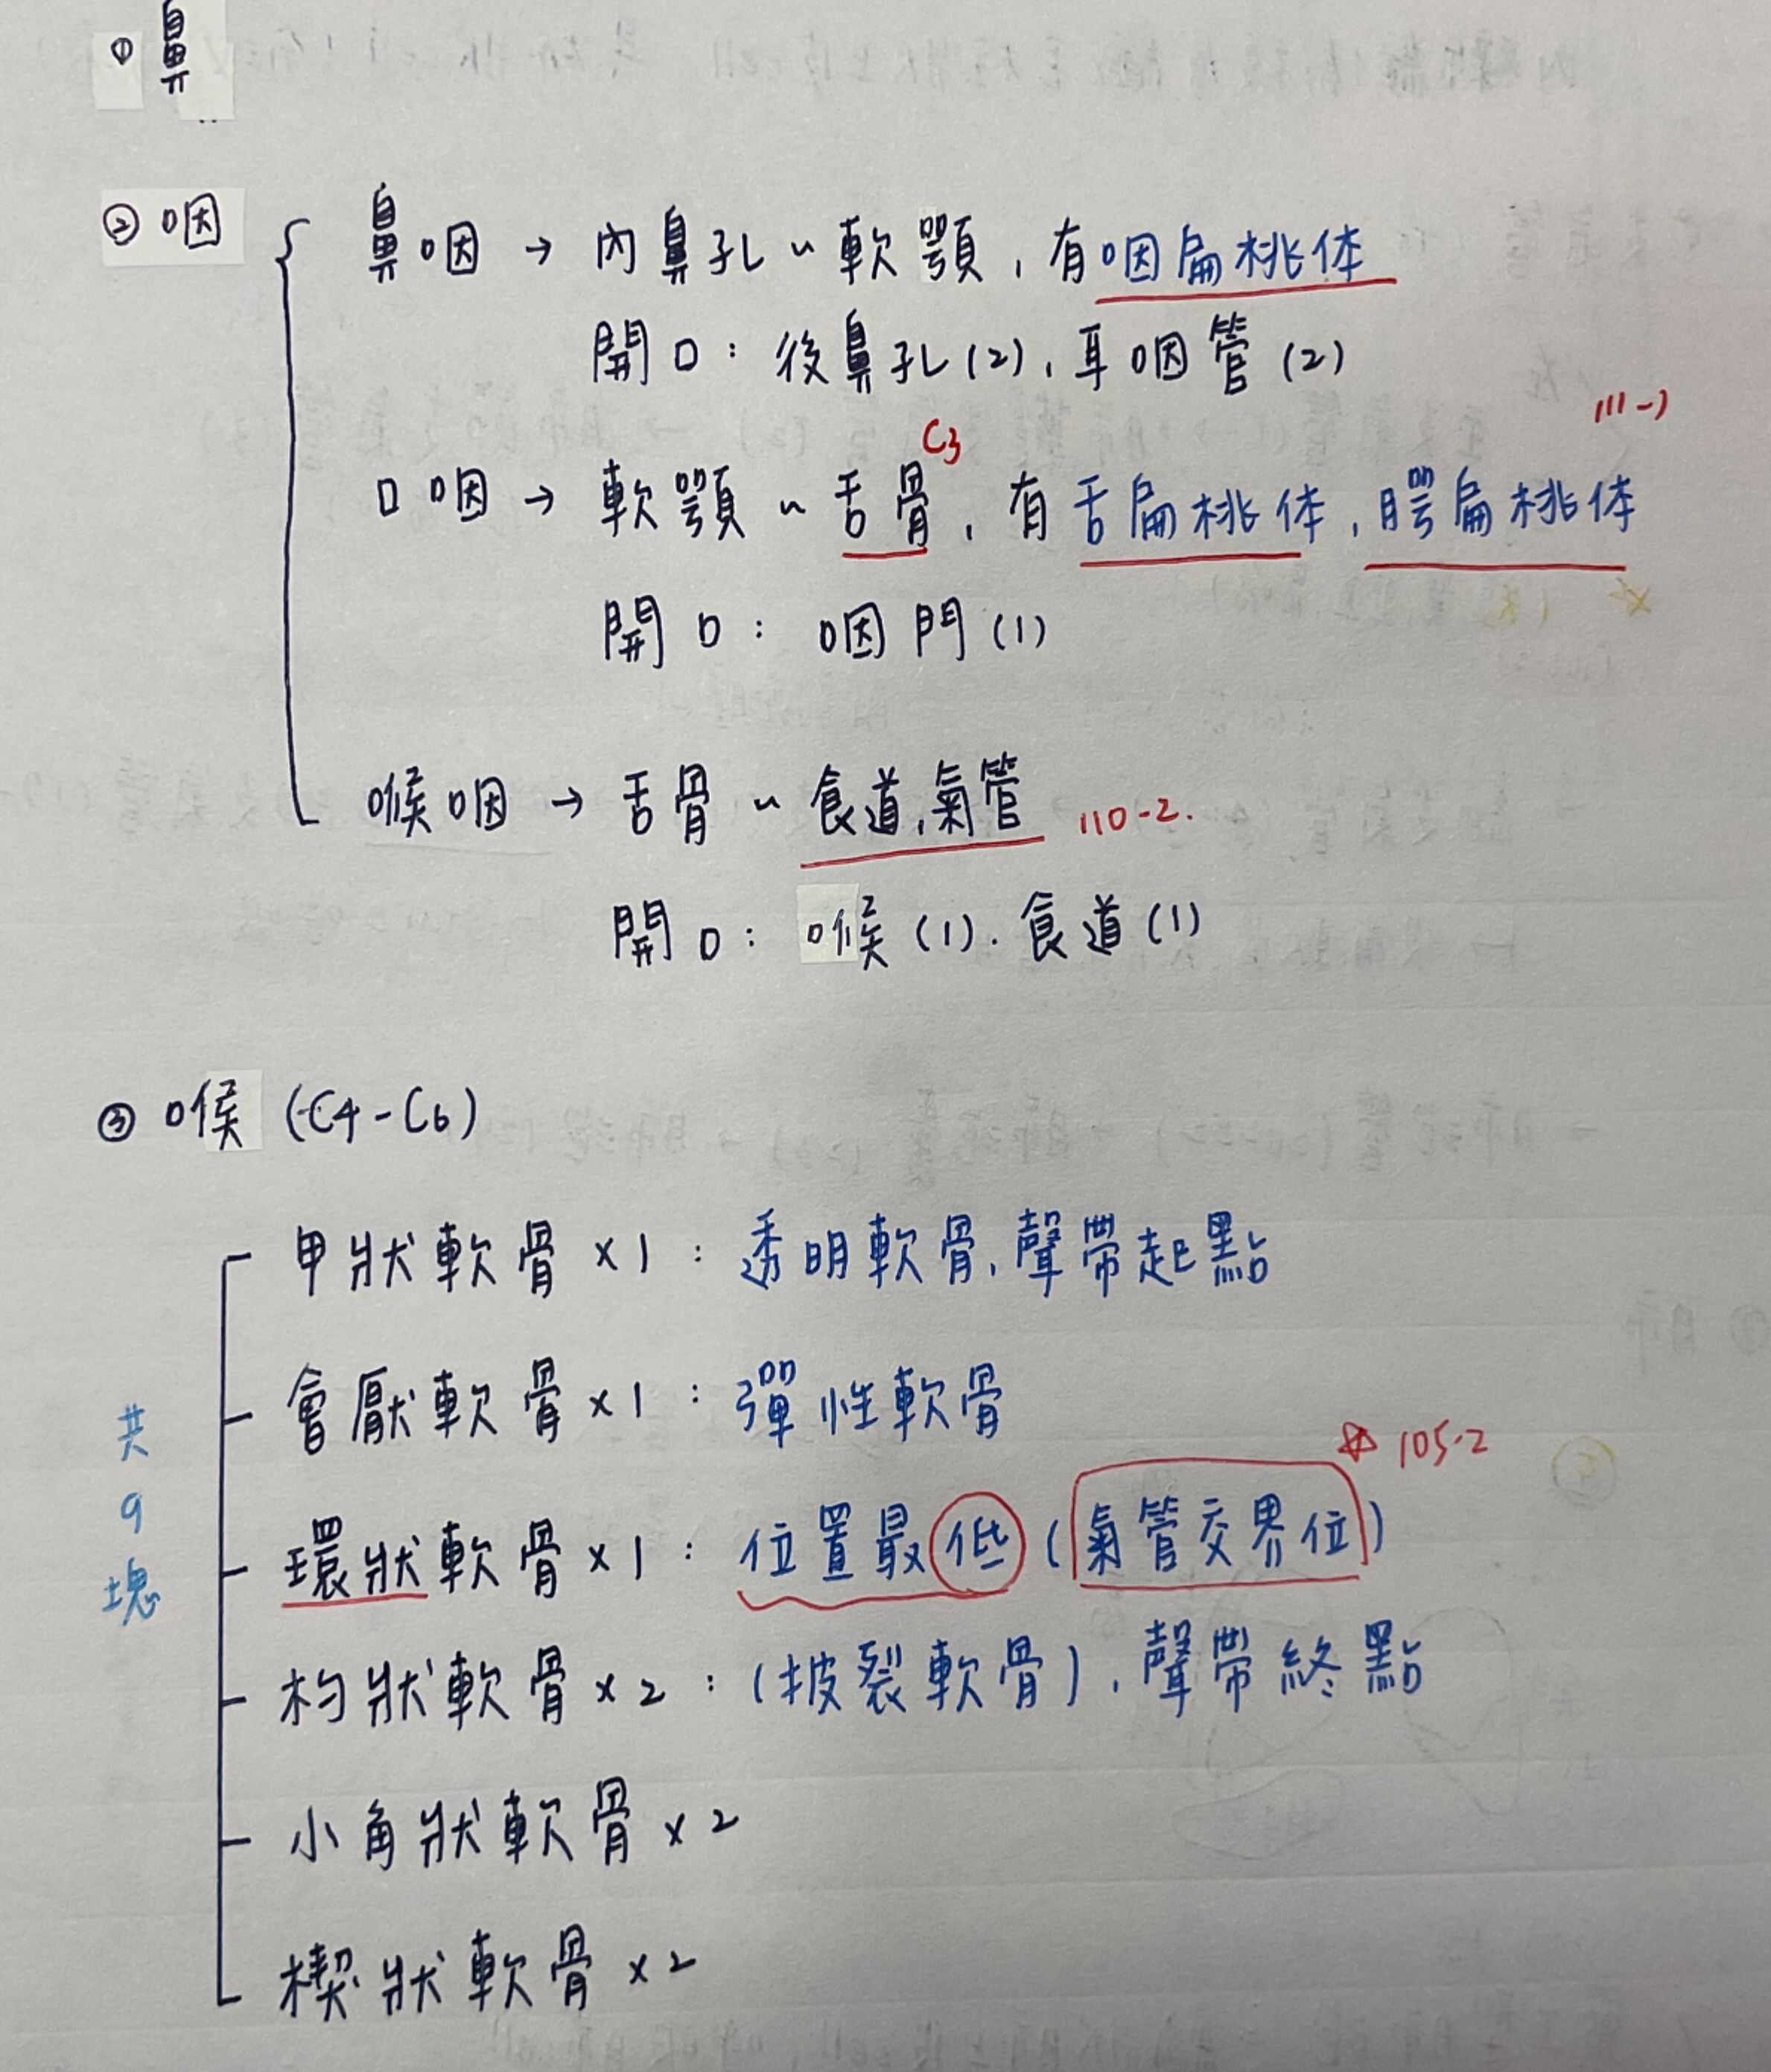 ① 鼻
② 咽
鼻咽 → 內鼻孔 ~ 軟顎，有咽扁桃体
開口：後鼻孔(2)，耳咽管(2)
C3
111-1
口咽 → 軟顎 ~ 舌骨，有舌扁桃体，腭扁桃体
開口：咽門(1)
喉咽 → 舌骨 ~ 食道，氣管 110-2.
開口：喉(1)．食道(1)
③ 喉 (C4-C6)
共9塊
甲狀軟骨×1：透明軟骨，聲帶起點
會厭軟骨×1：彈性軟骨
☆ 105-2
環狀軟骨×1：位置最低(氣管交界位)
杓狀軟骨×2：(披裂軟骨)，聲帶終點
小角狀軟骨×2
楔狀軟骨×2